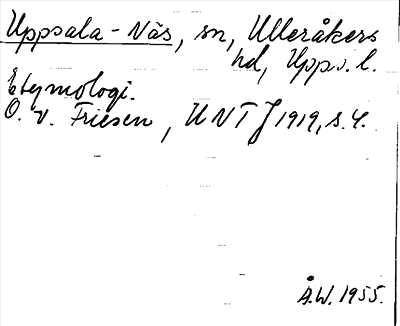 Uppsala-Näs, sn, Ulleråkers
hd, Upps. l.
Etymologi.
O. v. Friesen, UNT J 1919, s. 4.
Å.W. 1955.